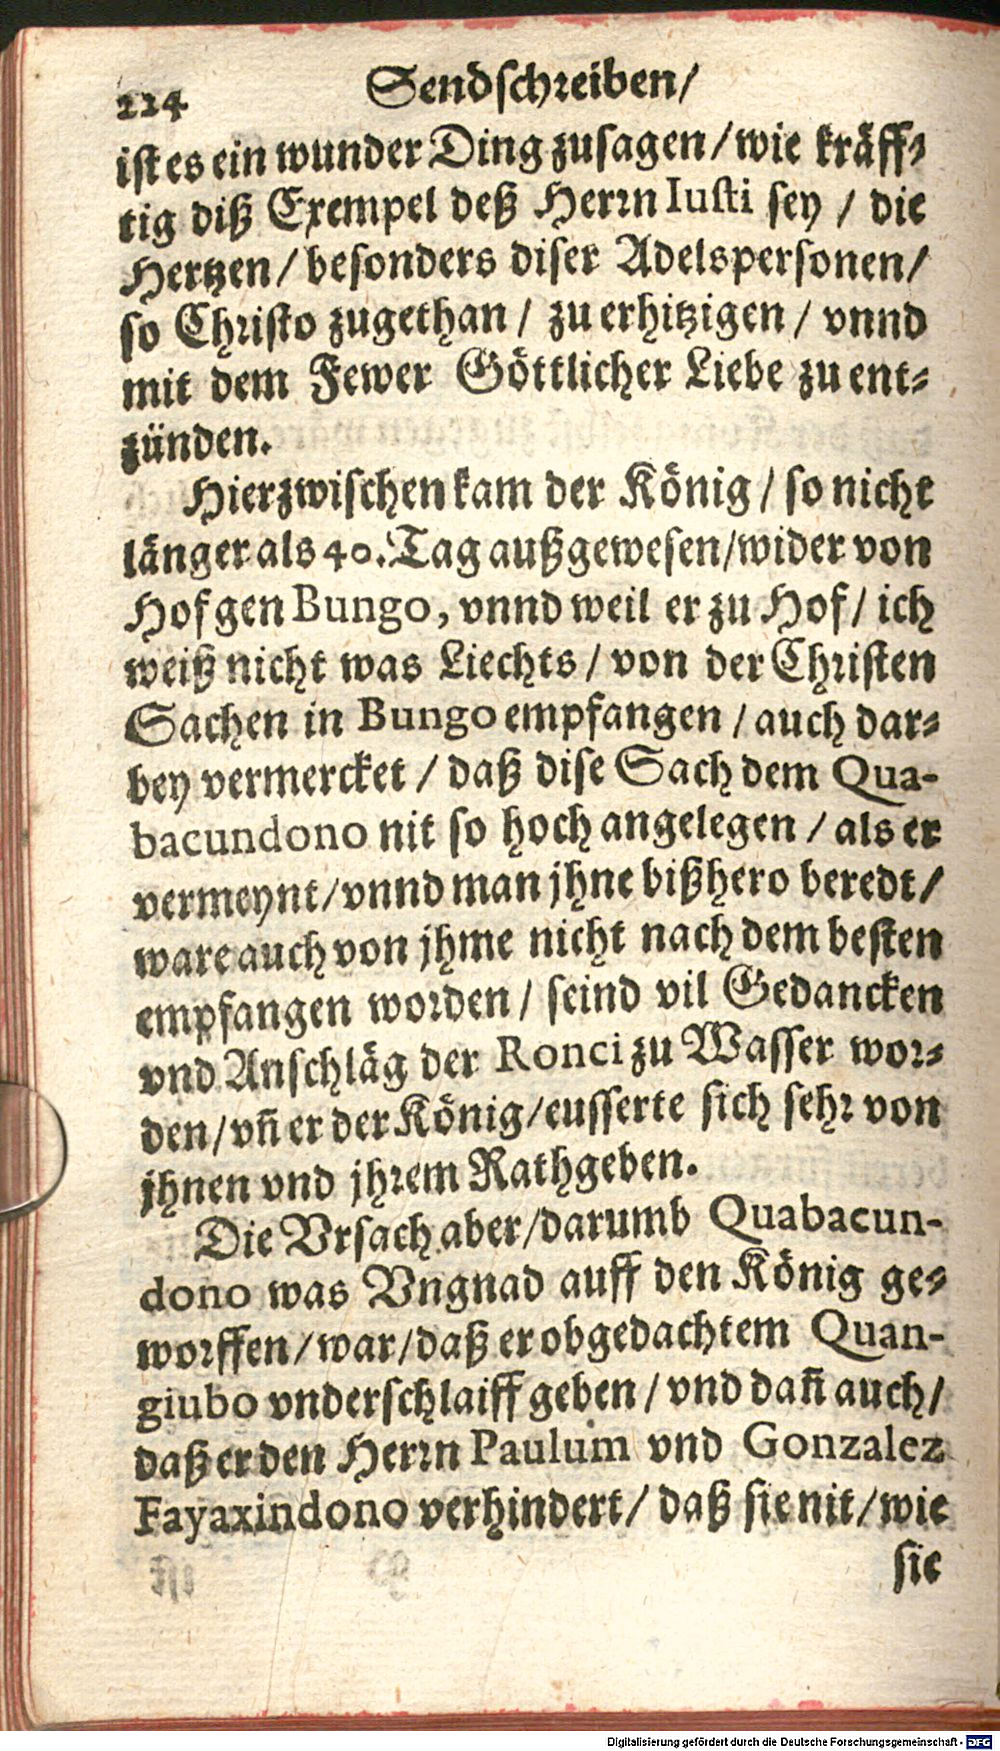 224
Sendschreiben/
ist es ein wunder Ding zusagen/wie kräff-
tig diß Exempel deß Herrn Iusti sey / die
Hertzen/ besonders diser Adelspersonen/
so Christo zugethan / zu erhitzigen / vnnd
mit dem Fewer Göttlicher Liebe zu ent-
zünden.
Hierzwischen kam der König / so nicht
länger als 40. Tag außgewesen/wider von
Hof gen Bungo, vnnd weil er zu Hof/ ich
weiß nicht was Liechts / von der Christen
Sachen in Bungo empfangen / auch dar-
bey vermercket / daß dise Sach dem Qua-
bacundono nit so hoch angelegen / als er
vermeynt/vnnd man jhne bißhero beredt/
ware auch von jhme nicht nach dem besten
empfangen worden / seind vil Gedancken
vnd Anschläg der Ronci zu Wasser wor-
den/vñ er der König/eusserte sich sehr von
jhnen vnd jhrem Rathgeben.
Die Vrsach aber/darumb Quabacun-
dono was Vngnad auff den König ge-
worffen/war/daß er obgedachtem Quan-
giubo vnderschlaiff geben/ vnd dañ auch/
daß er den Herrn Paulum vnd Gonzalez
Fayaxindono verhindert/ daß sie nit/wie
sie
Digitalisierung gefördert durch die Deutsche Forschungsgemeinschaft - DFG